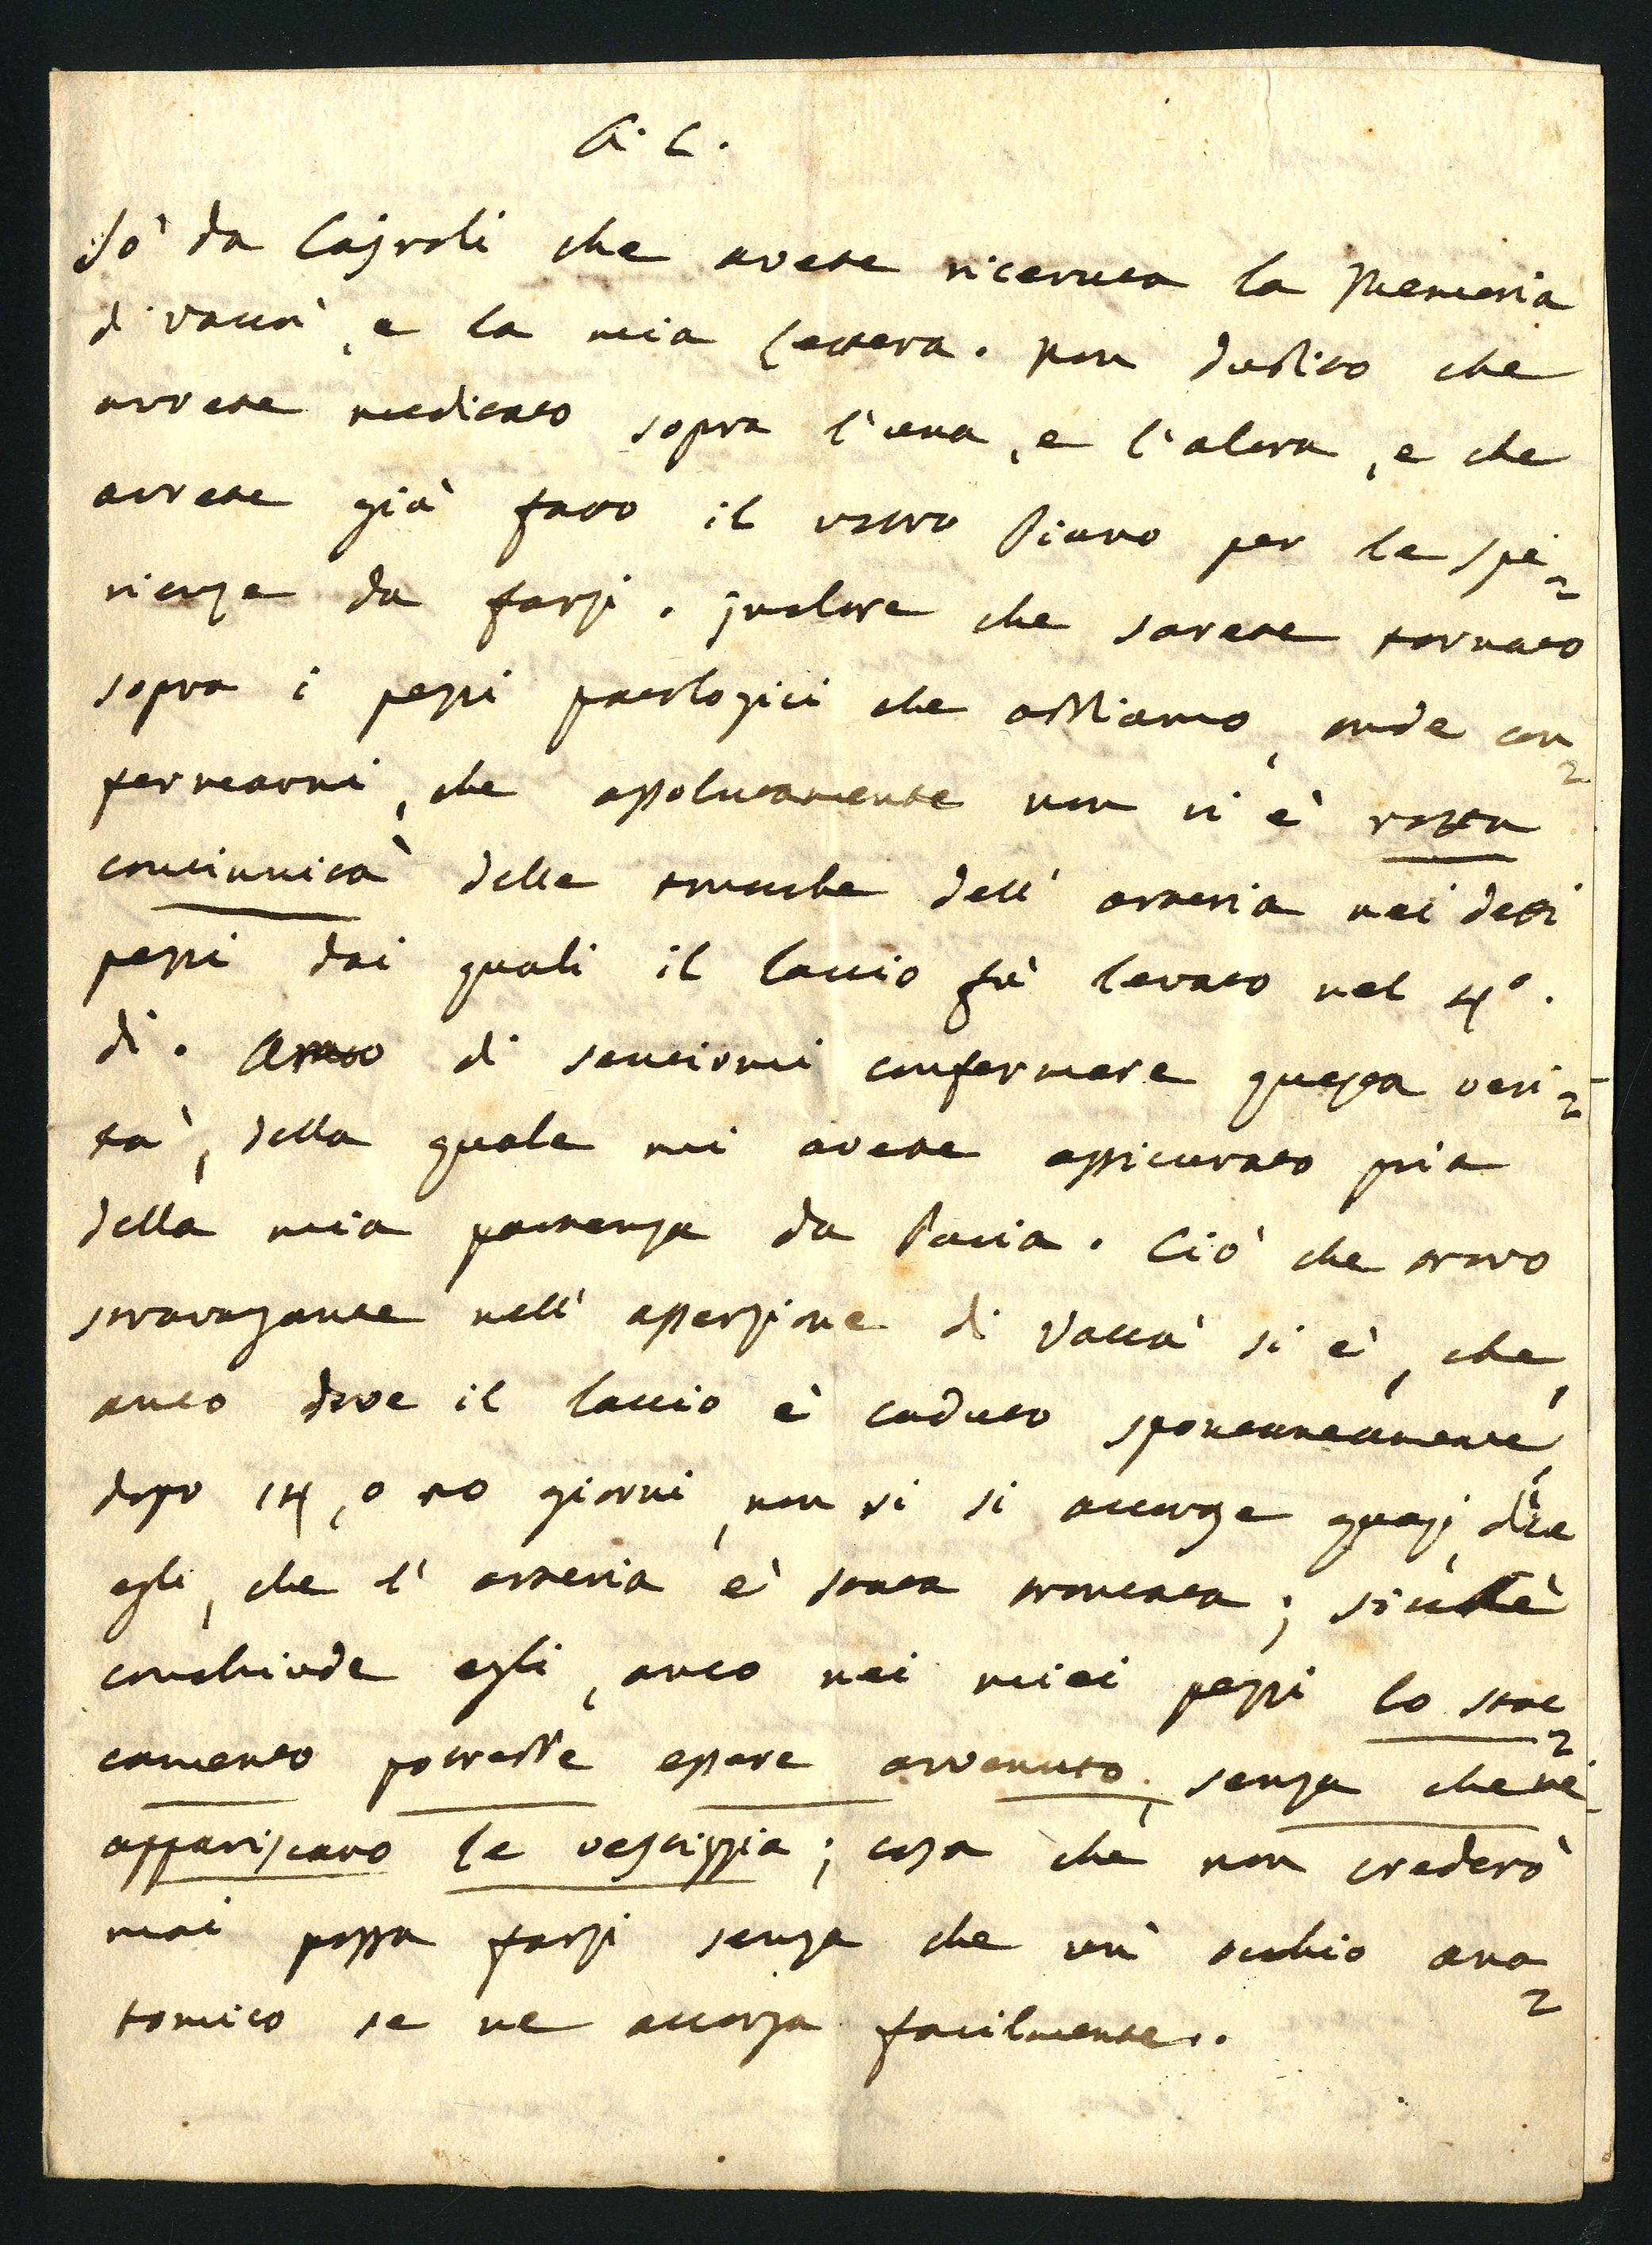 A. C.
Sò da Cajroli che avete ricevuta la Memoria
di Vaccà, e la mia lettera. Non dubito che
avrete meditato sopra l'una, e l'altra, e che
avrete già fatto il vostro Piano per le spe=
rienze da farsi. Inoltre che sarete tornato
sopra i pezzi patologici che abbiamo, onde con=
fermarvi, che assolutamente non vi è rotta
continuità delle tonache dell' arteria nei detti
pezzi dai quali il laccio fù levato nel 4°.
dì. Amo di sentirmi confermare questa veri=
tà, della quale mi avete assicurato pria
della mia partenza da Pavia. Ciò che trovo
stravagante nell' asserzione di Vaccà si è, che,
anco dove il laccio è caduto spontaneamente,
dopo 14, o 20 giorni, non vi si accorge quasi, dice
egli, che l' arteria è stata troncata; sicchè
conchiude egli, anco nei miei pezzi lo stac=
camento potrebbe essere avvenuto, senza che ne
appariscano le vestiggia; cosa che non crederò
mai possa farsi senza che un' occhio ana=
tomico se ne accorga facilmente.